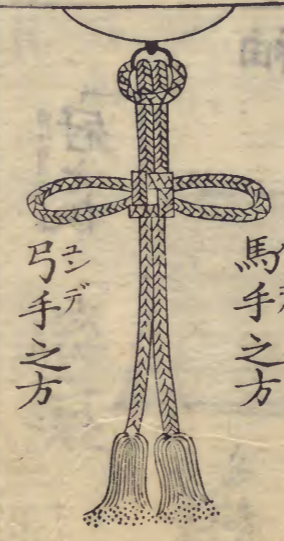 馬手之方
弓手之方
ユンデ